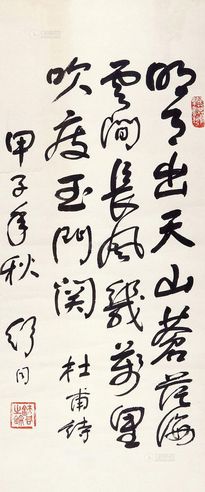 明月出天山蒼茫海
雲間長風幾萬里
吹度玉門関
杜甫詩
甲子年秋
舒同